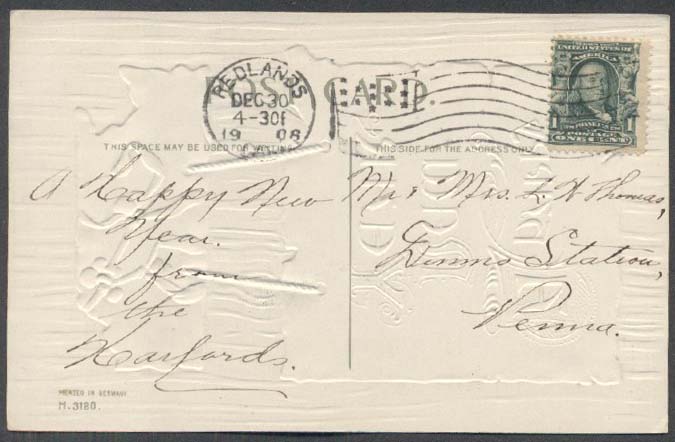 POST CARD.
REDLANDS
DEC 30
4-30P
1908
CAL.
UNITED STATES OF
AMERICA
1 1
POSTAGE
ONE CENT
THIS SPACE MAY BE USED FOR WRITING
THIS SIDE FOR THE ADDRESS ONLY
A Happy New
Year.
from
the
Harfords.
Mr & Mrs. L. H. Thomas,
Dinns Station,
Penna.
PRINTED IN GERMANY
H. 3180.